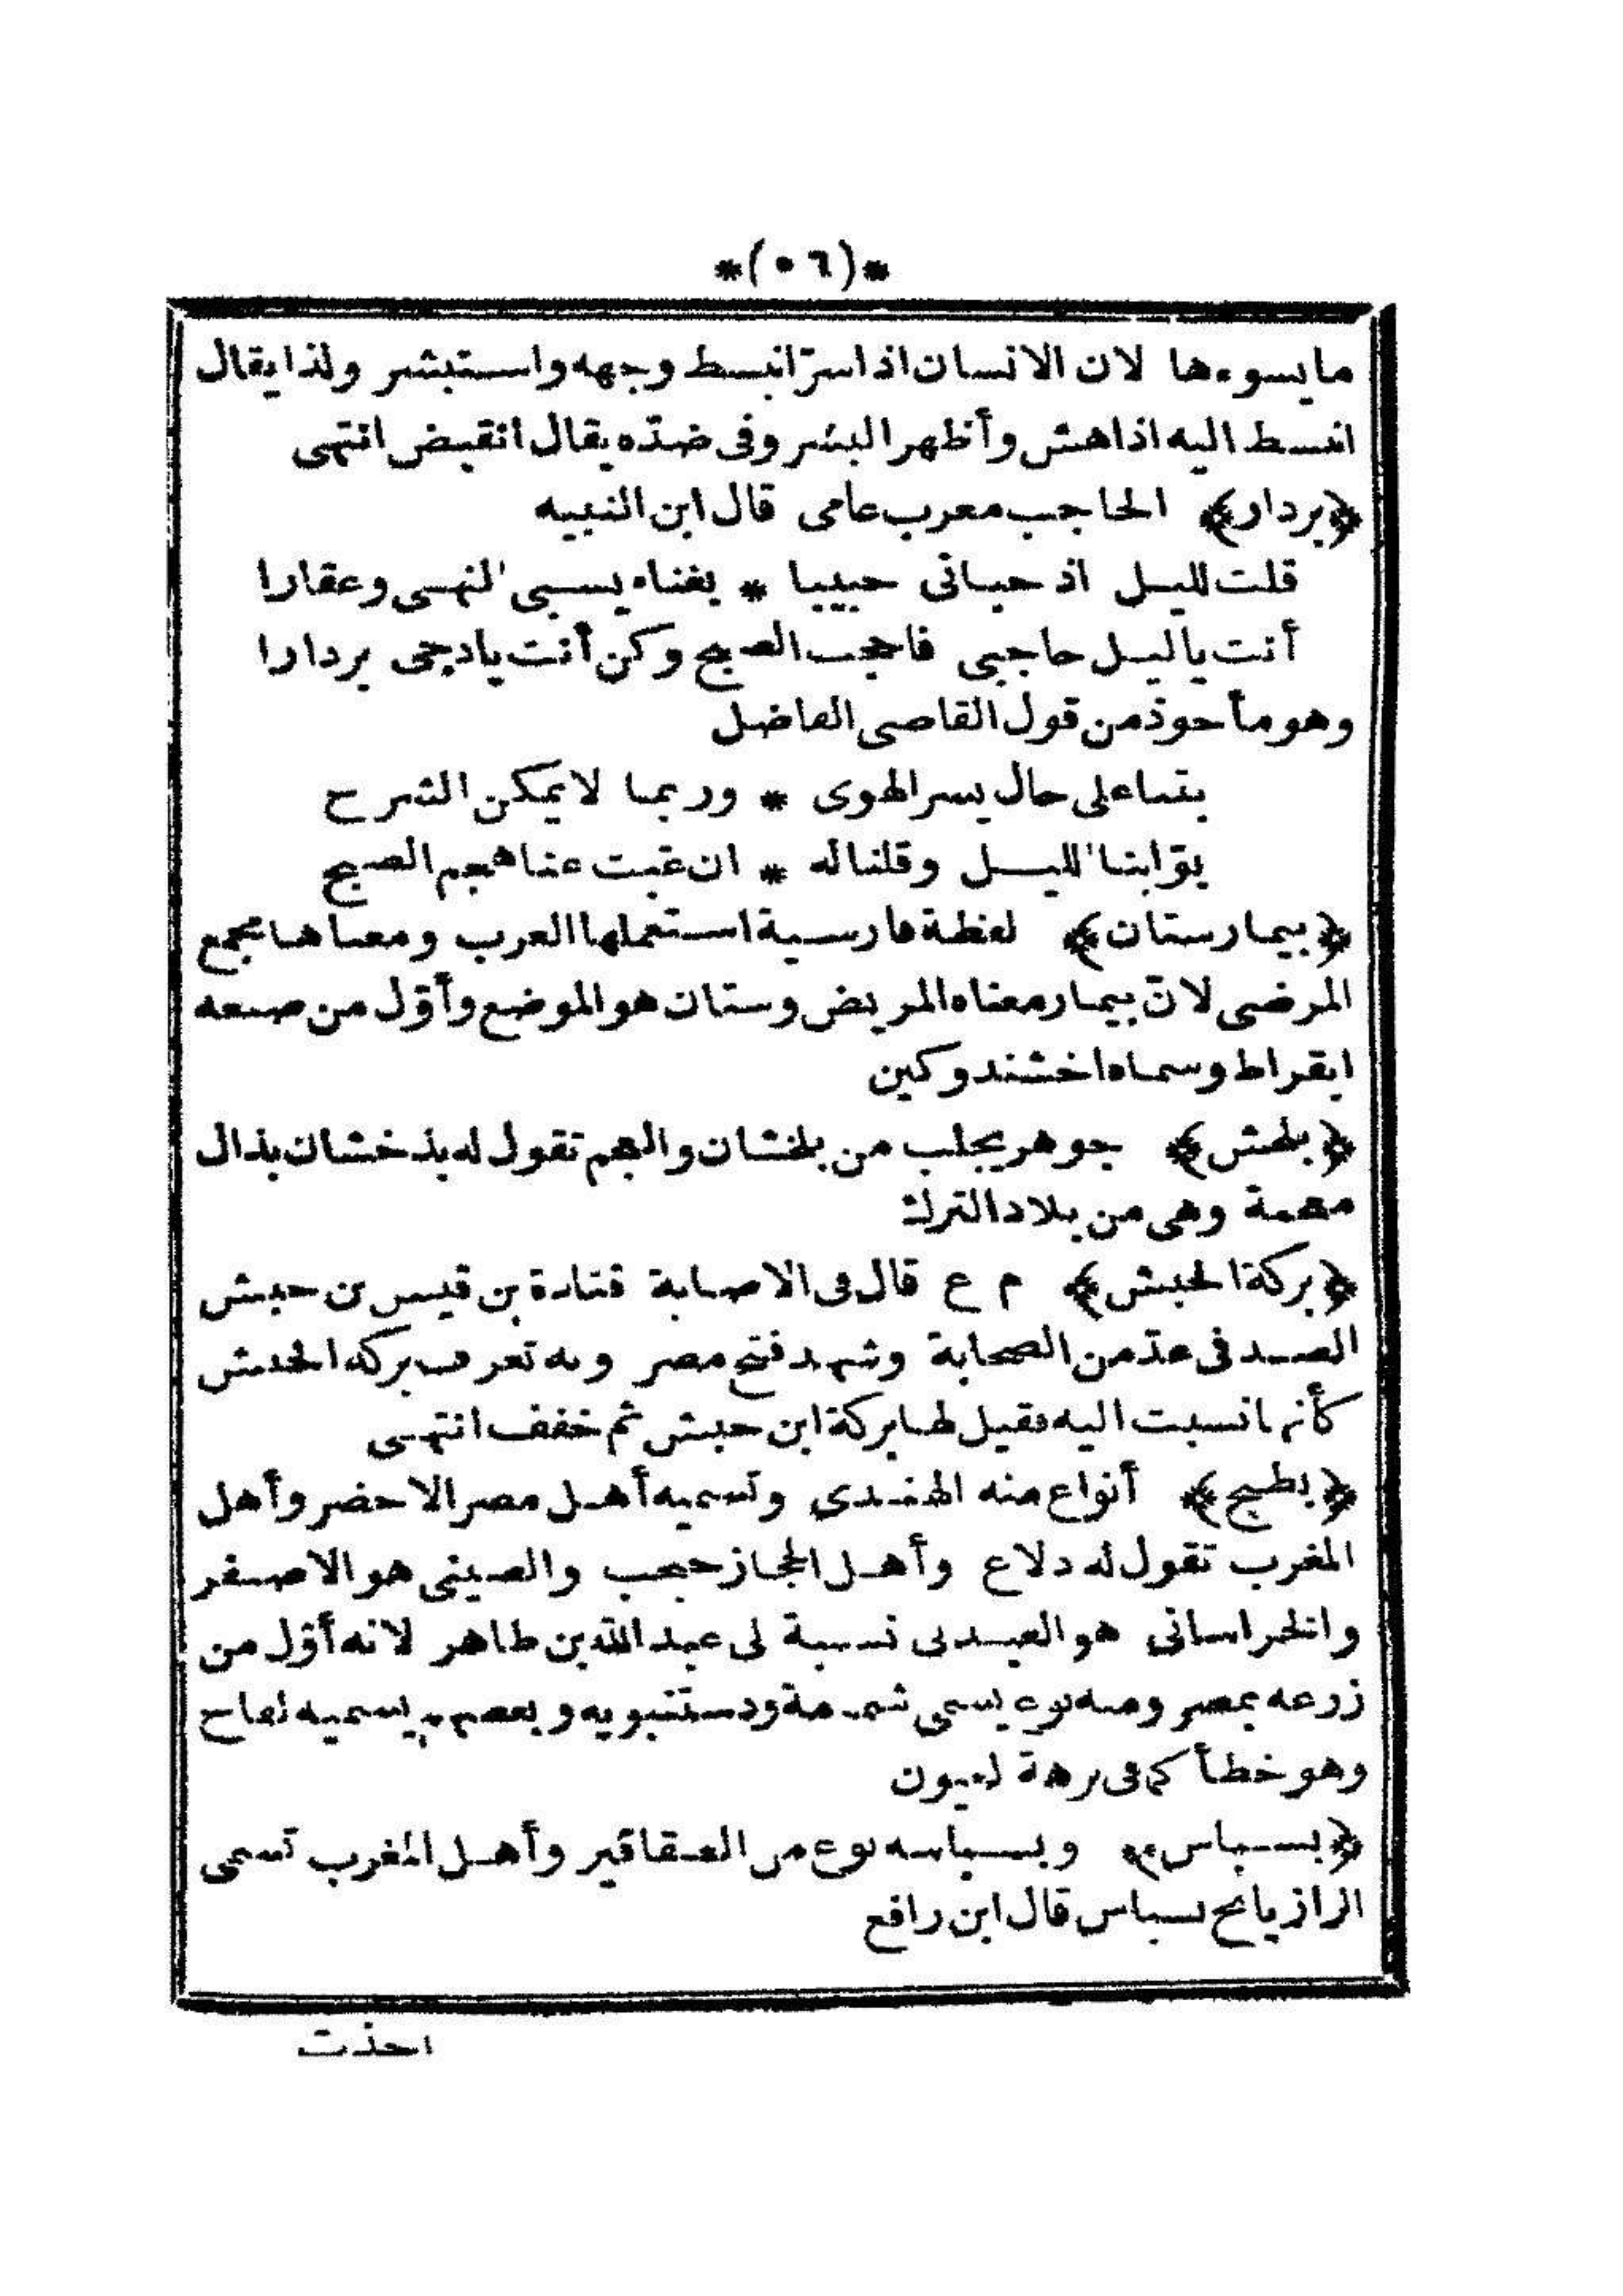 *(٥٦)*
ما يسوءها لان الانسان اذا سرّ انبسط وجهه واستبشر ولذا يقال
انبسط اليه اذا هش وأظهر البشر وفى ضدّه يقال انقبض انتهى
﴿بردار﴾ الحاجب معرب عامى قال ابن النبيه
قلت لليل اذ حبانى حبيبا * بغناء يسبى النهى وعقارا
أنت ياليل حاجبى فاحجب الصبح وكن أنت يادجى بردارا
وهو مأخوذ من قول القاضى الفاضل
بتنا على حال يسر الهوى * وربما لا يمكن الشرح
بوّابنا الليل وقلنا له * ان غبت عنا هجم الصبح
﴿بيمارستان﴾ لفظة فارسية استعملها العرب ومعناها مجمع
المرضى لانّ بيمار معناه المريض وستان هو الموضع وأوّل من صنعه
ابقراط وسماه اخشندوكين
﴿بلخش﴾ جوهر يجلب من بلخشان والعجم تقول له بذخشان بذال
معجمة وهى من بلاد الترك
﴿بركة الحبش﴾ م ع قال فى الاصابة قتادة بن قيس بن حبش
الصدفى عدّ من الصحابة وشهد فتح مصر وبه تعرف بركة الحبش
كأنها نسبت اليه فقيل لها بركة ابن حبش ثم خفف انتهى
﴿بطيخ﴾ أنواع منه الهندى وتسميه أهل مصر الاخضر وأهل
المغرب تقول له دلاع وأهل الحجاز حبحب والصينى هو الاصفر
والخراسانى هو العبدلى نسبة لى عبد الله بن طاهر لانه أوّل من
زرعه بمصر ومنه نوع يسمى شمامة ودستنبويه وبعضهم يسميه لفاح
وهو خطأ كما فى نزهة العيون
﴿بسباس﴾ وبسباسه نوع من العقاقير وأهل المغرب تسمى
الرازيانج بسباس قال ابن رافع
اخذت